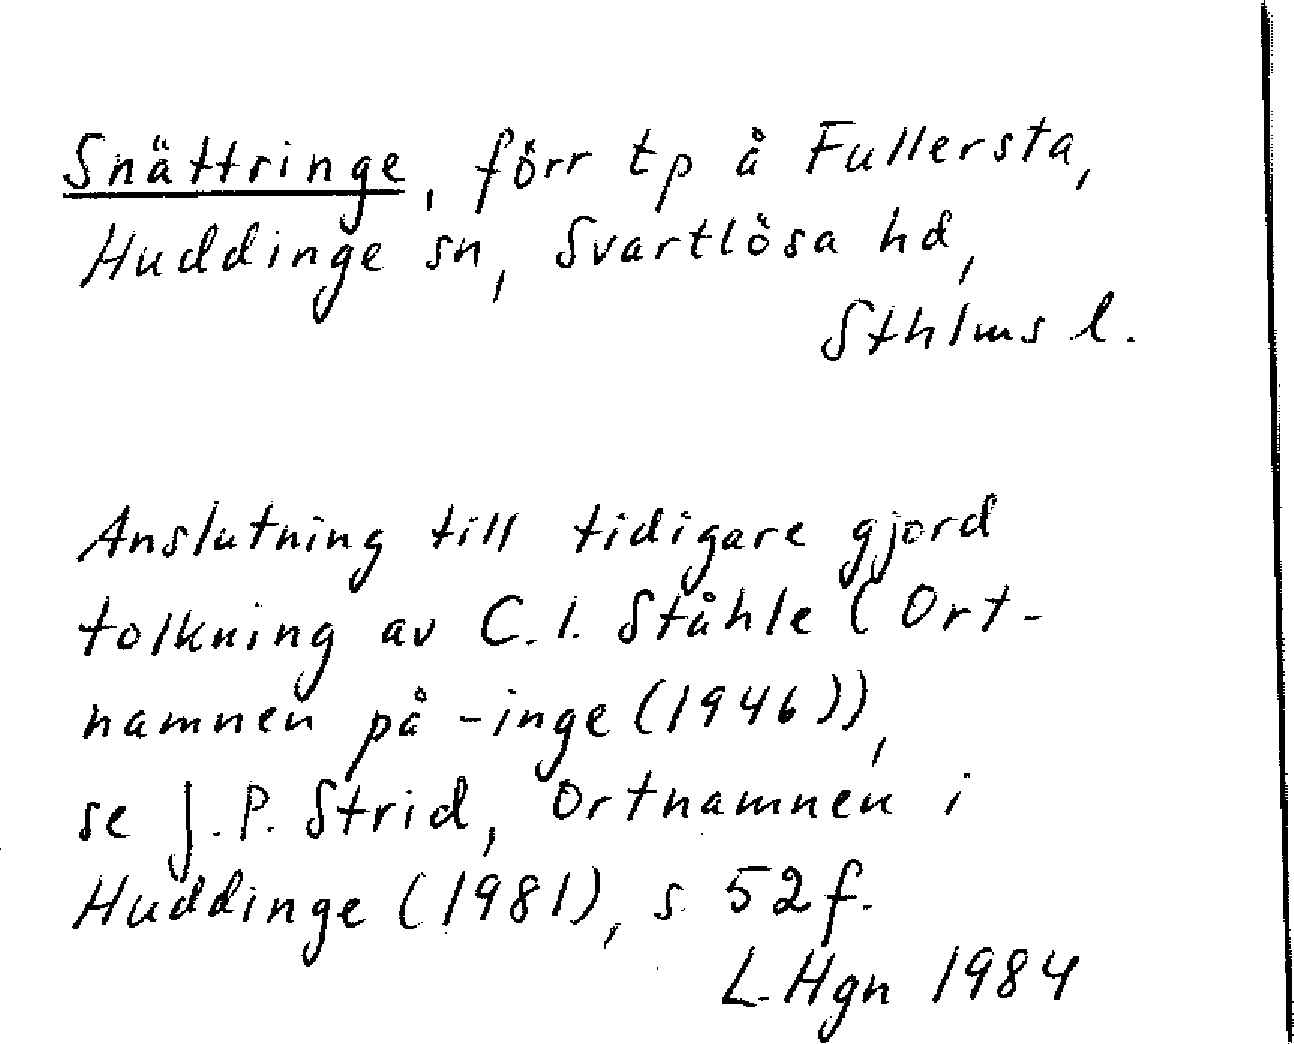 Snättringe, förr tp å Fullersta,
Huddinge sn, Svartlösa hd,
Sthlms l.
Anslutning till tidigare gjord
tolkning av C.I. Ståhle (Ort-
namnen på -inge (1946)),
se J.P. Strid, Ortnamnen i
Huddinge (1981), s. 52 f.
L. Hgn 1984